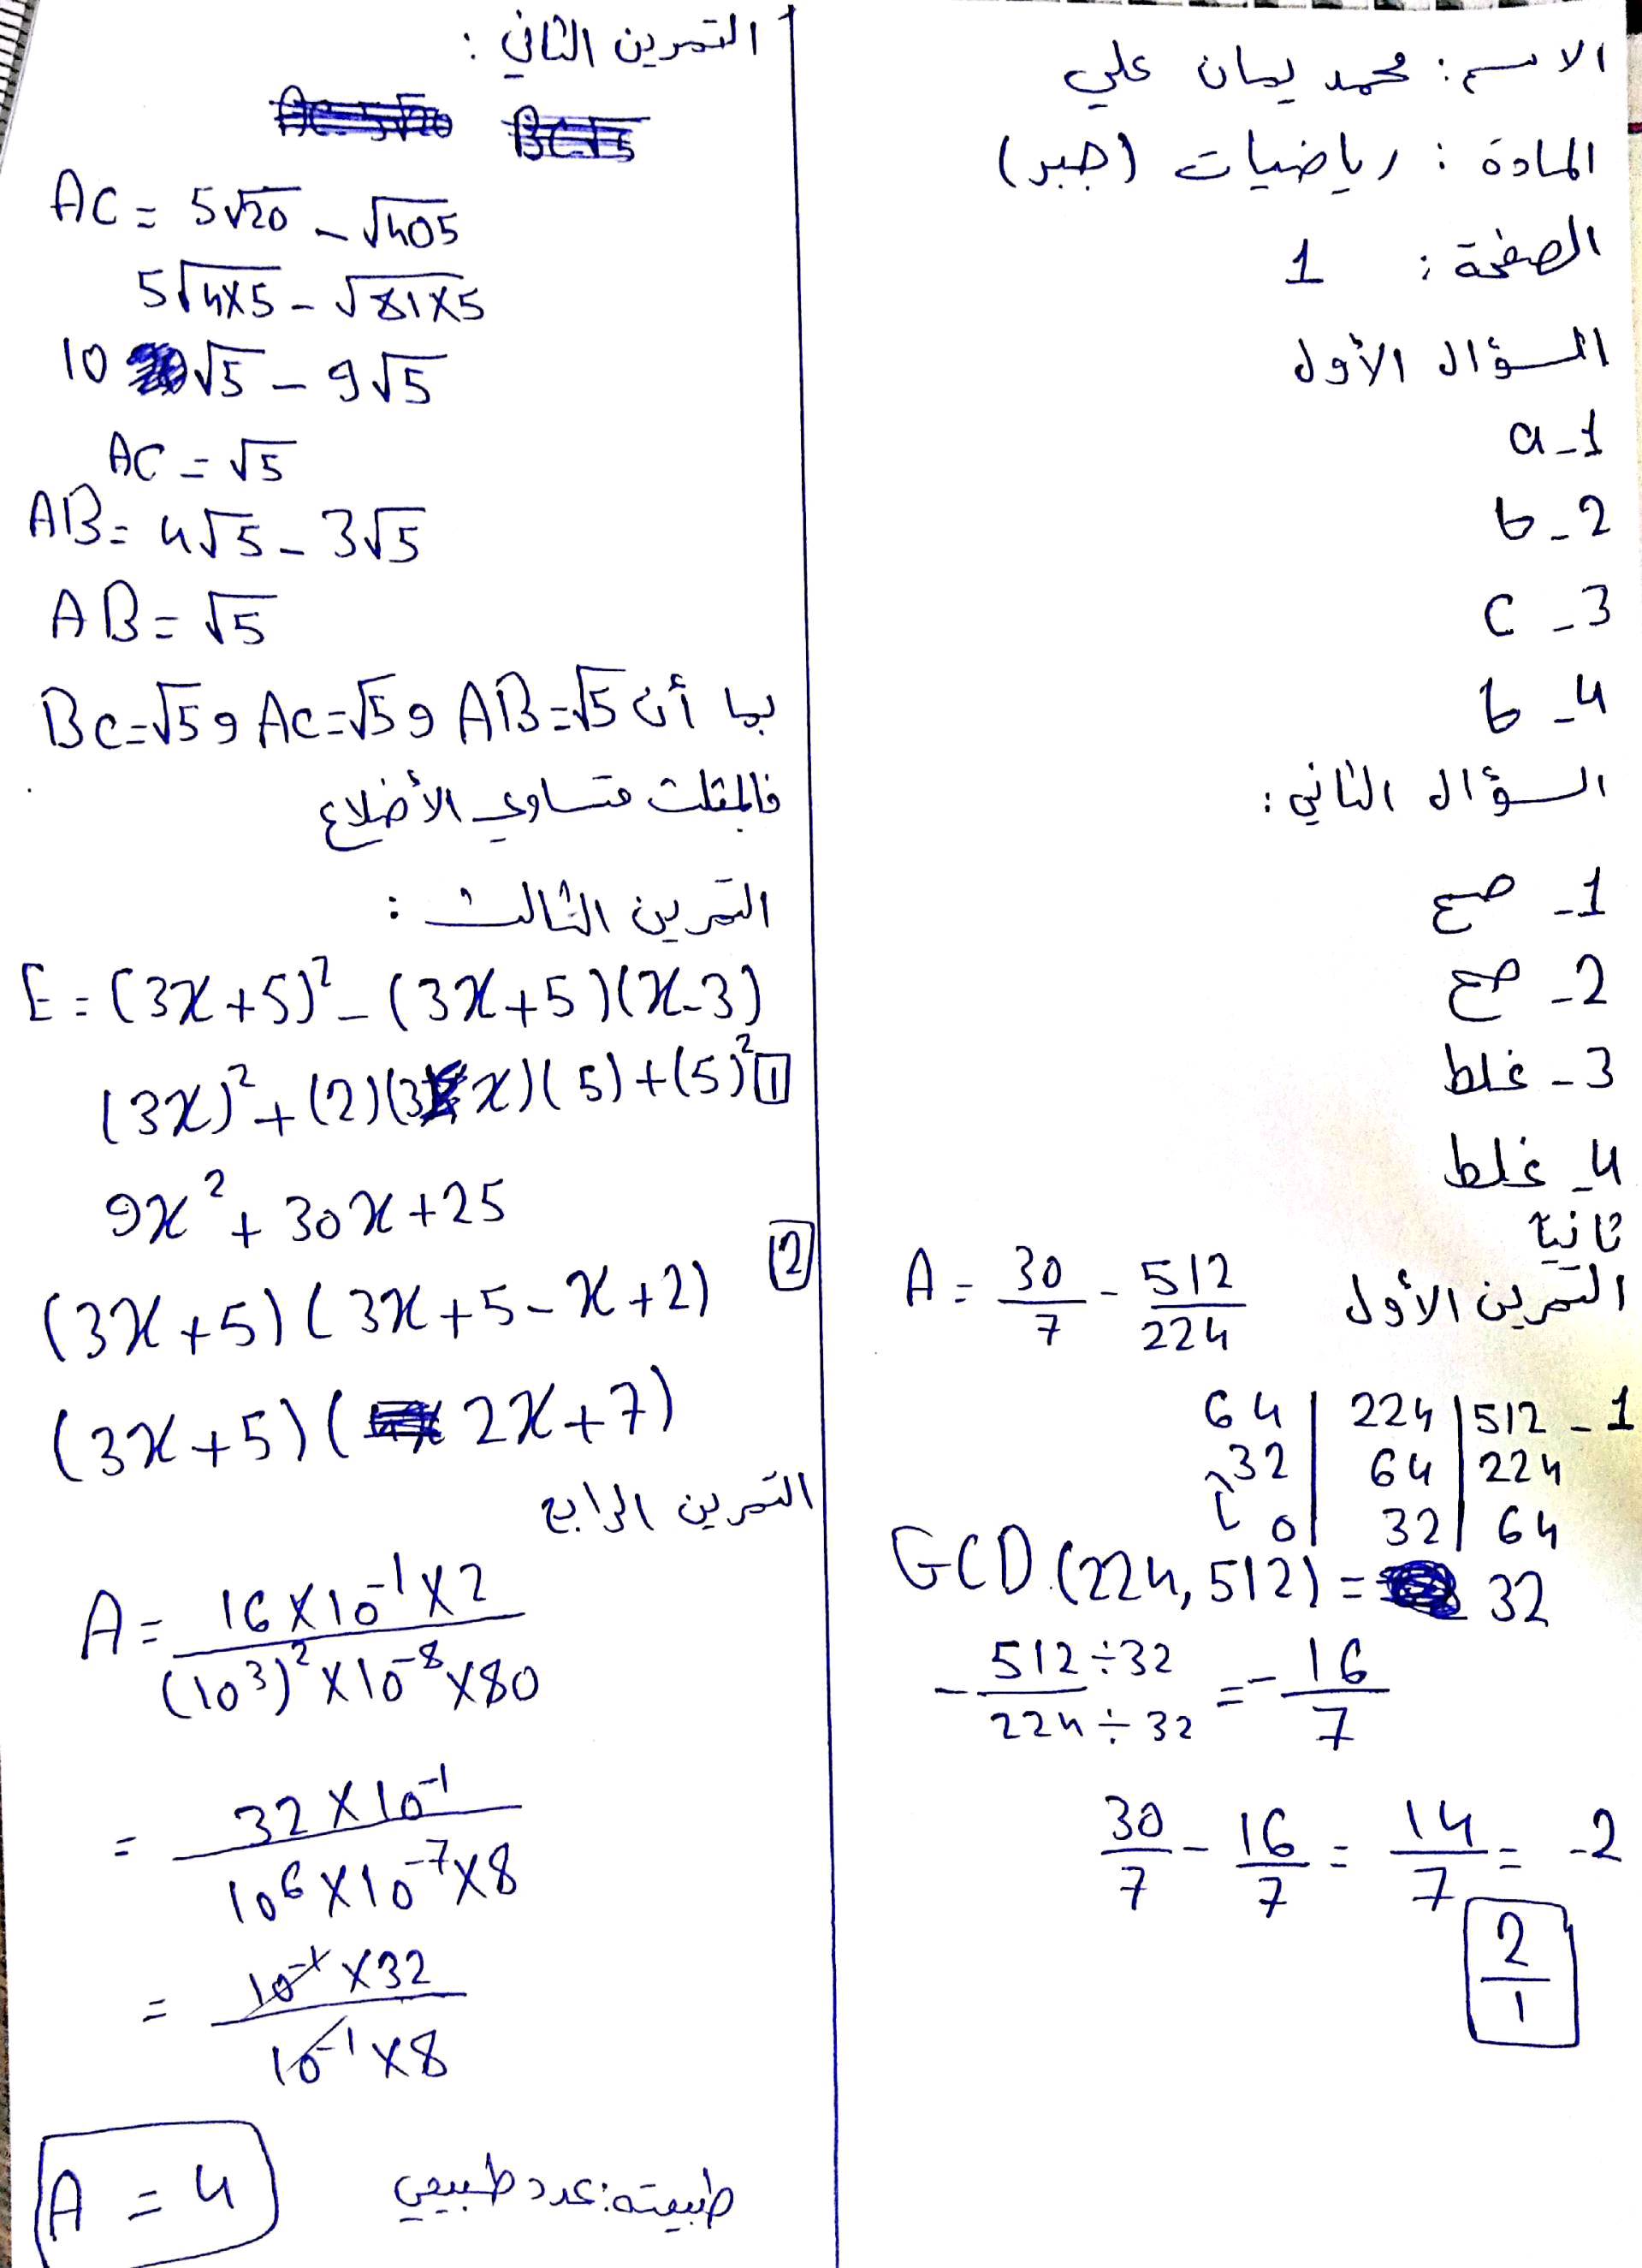 الاسم: محمد يمان علي
المادة: رياضيات (جبر)
الصفحة: 1
السؤال الأول
a_1
b_2
c_3
b_4
السؤال الثاني:
1_ صح
2_ صح
3_ غلط
4_ غلط
ثانيا
التمرين الأول A = 30/7 - 512/224
1_ 512 | 224 | 64
224 | 64 | 32
64 | 32 | 0
GCD(224,512) = 32
-512÷32/224÷32 = -16/7
30/7 - 16/7 = 14/7 = -2
2/1
التمرين الثاني:
AC = 5√20 - √405
5√4×5 - √81×5
10√5 - 9√5
AC = √5
AB = 4√5 - 3√5
AB = √5
بما أن AB=√5 و AC=√5 و BC=√5
فالمثلث متساوي الأضلاع
التمرين الثالث:
E = (3x+5)² - (3x+5)(x-3)
(3x)² + (2)(3x)(5) + (5)² 1
9x² + 30x + 25
2 (3x+5)(3x+5-x+2)
(3x+5)(2x+7)
التمرين الرابع
A = 16×10⁻¹×2/(10³)²×10⁻⁸×80
= 32×10⁻¹/10⁶×10⁻⁷×8
= 10⁻¹×32/10⁻¹×8
A = 4 طبيعته: عدد طبيعي